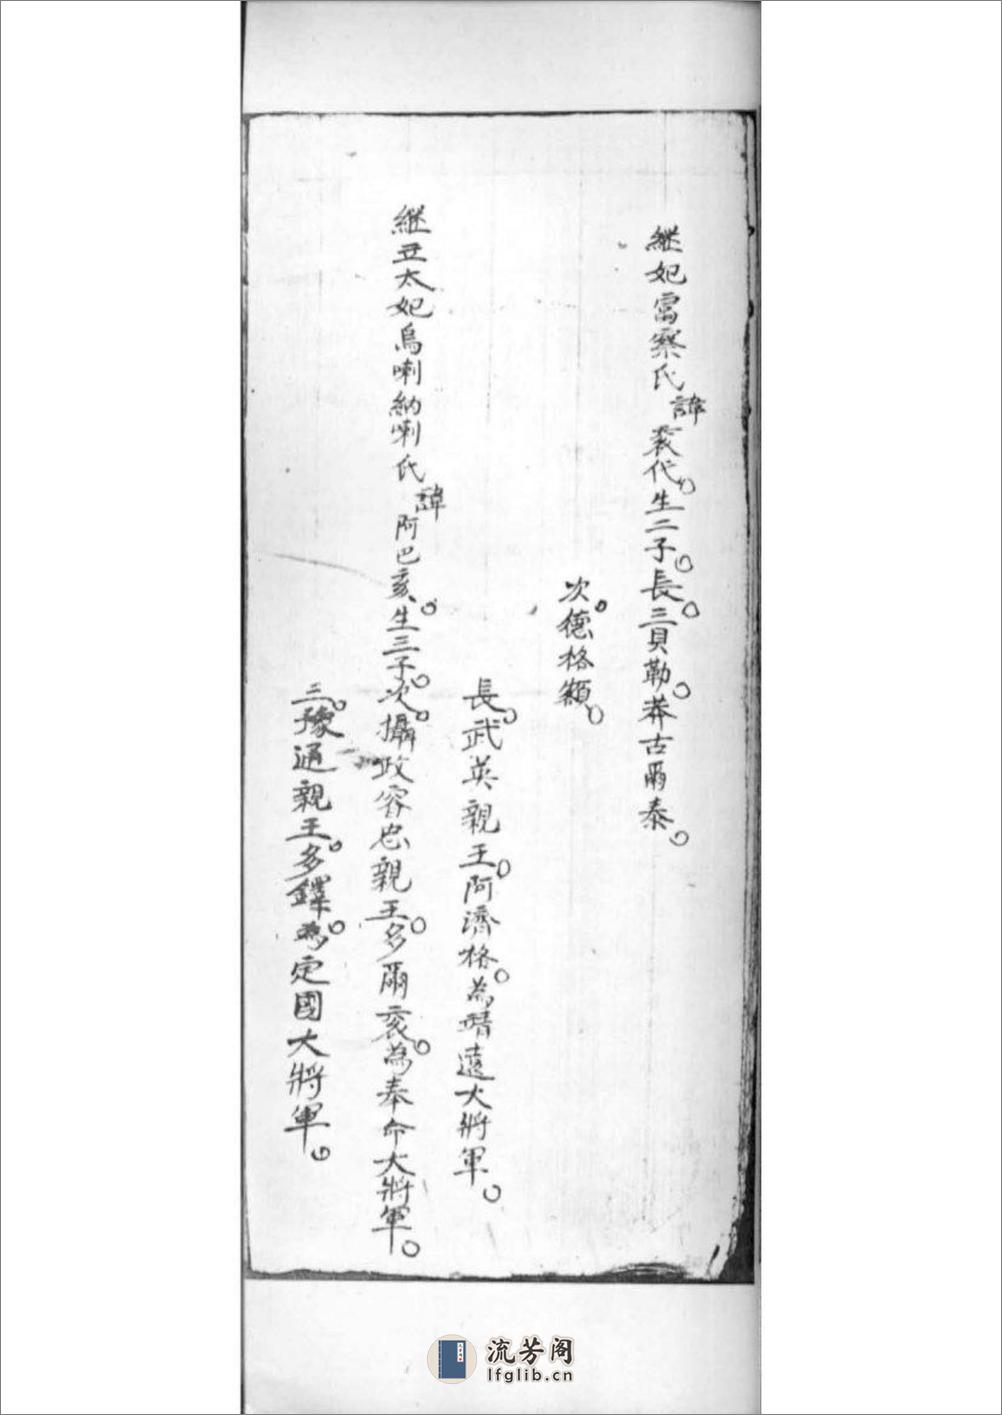 継妃富察氏諱袞代。生二子。長。三貝勒。莽古爾泰。
次。德格類。
長。武英親王。阿濟格。為靖遠大將軍。
継丑太妃烏喇納喇氏諱阿巴亥。生三子。次。攝政容忠親王。多爾袞。為奉命大將軍。
三。豫通親王。多鐸。為定國大將軍。
流芳阁
lfglib.cn